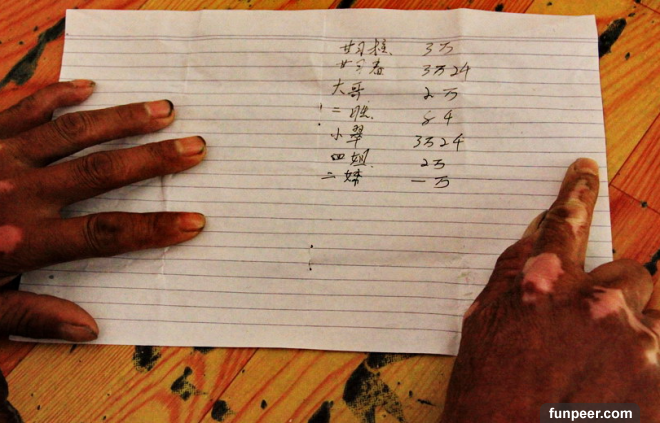 3万
3万24
大哥 2万
二胜 84
小翠 3万24
四姐 2万
二婶 一万
funpeer.com